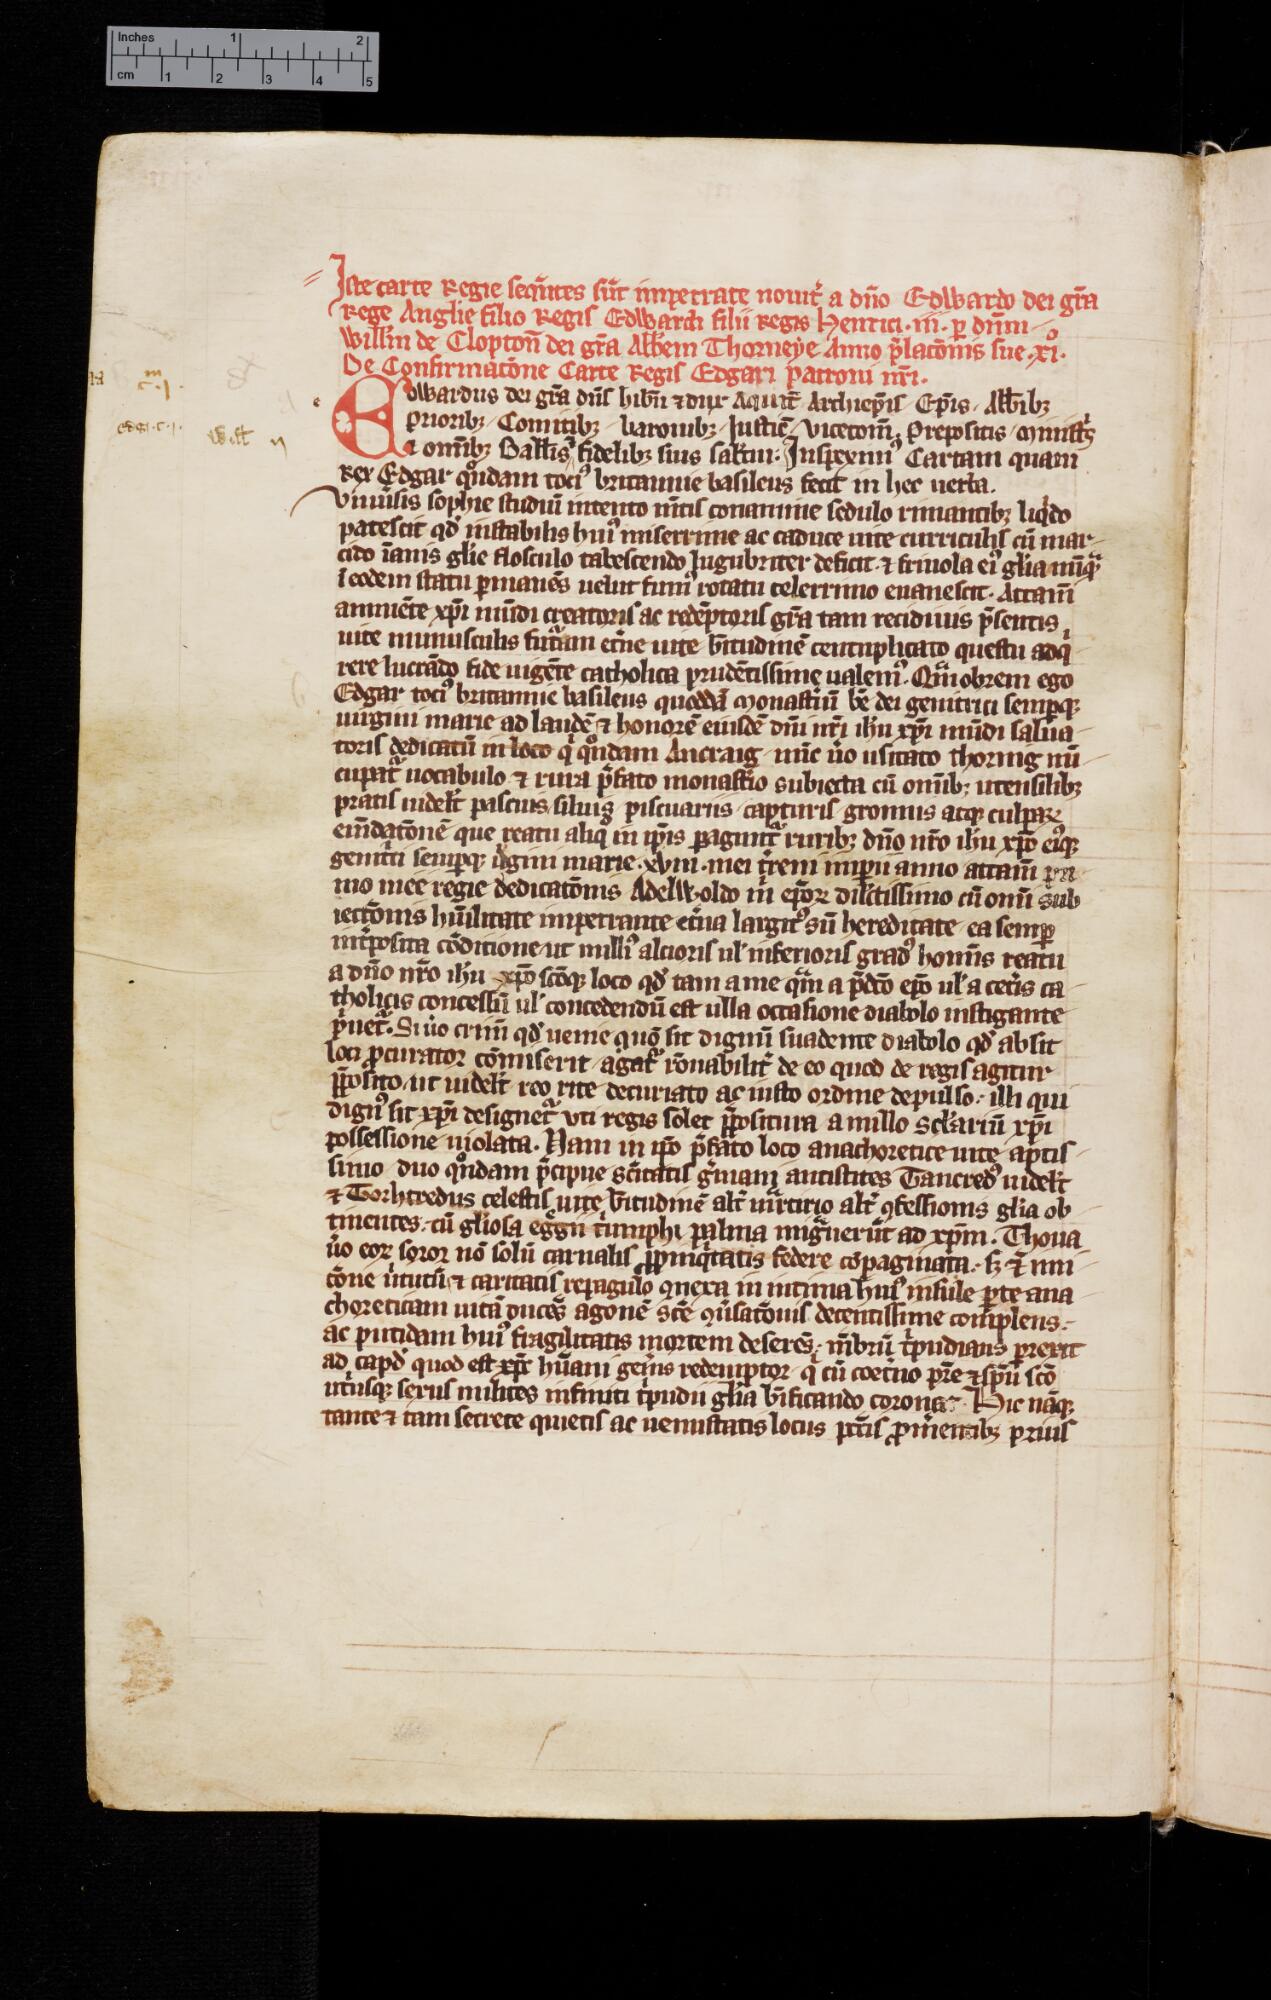 Inches 1 2
cm 1 2 3 4 5
Iste carte Regie seqūntes sūt impetrate nouit̾ a dn̄o Edwardo dei gr̄a
Rege Anglie filio Regis Edwardi filii regis Henrici .iii. p dn̄m
Willm̄ de Cloptoñ dei gr̄a Abb̄em Thorneye Anno p̄lacōnis sue .xiº.
De Confirmac̄one Carte Regis Edgari patroni nr̄i.
Edwardus dei gr̄a dn̄s hib̄n ⁊ dux Aquit̄ Archiep̄is Ep̄is Abb̄ibꝫ
Prioribꝫ Comitibꝫ baronibꝫ Justic̄ vicecom̄ Prepositis Ministr̄s
⁊ omībꝫ Ball̄is ⁊ fidelibꝫ suis salt̄m. Inspeximꝰ Cartam quam
Rex Edgar qͦndam tociꝰ britannie basileus fecit in hec uerba.
Vniu̾sis sophie studiū intento mn̄tis conamine sedulo rimantibꝫ liqͥdo
patescit qd̾ instabilis huiꝰ miserrime ac caduce uite curriculis cū mar
cido īanis gl̄ie flosculo tabescendo lugubriter deficit ⁊ friuola eiꝰ gl̄ia nūqͣ
ī eodem statu ꝑmanēs uelut fumꝰ rotatu celerrimo euanescit. Attam̄
annuēte xp̄i mūdi creatoris ac redēptoris gr̄a tam recidiuis p̄sentis
uite munusculis futͣam et̾ne uite b̄titudinē centuplicato questu adqͥ
rere lucrādo fide uigēte catholica prudētissime ualemꝰ. Qͣmobrem ego
Edgar tociꝰ britannie basileus quoddā monast̾iū b̄e dei genitrici semperqꝫ
uirgini marie ad laudē ⁊ honorē eiusdē dn̄i nr̄i ih̄u xp̄i mūdi salua
toris dedicatū in loco qͥ qͦndam Ancraig nūc u̾o usitato thornig nū
cupat̾ uocabulo ⁊ rura p̄fato monast̾io subiecta cū omībꝫ utensilibꝫ
pratis uidel̄t pascuis siluis piscuariis capturis gronnis atqꝫ culpaꝝ
emēdac̄onē que reatu aliqͦ in ip̄is ꝑagunt̾ ruribꝫ dn̄o nr̄o ih̄u xp̄o eiꝰqꝫ
genitͥci semperqꝫ u̾gini marie .xviii. mei t̾reni imperii anno attam̄ pri
mo mee regie dedicac̄onis Adelwoldo m̄ ep̄oꝝ dilc̄tissimo cū omī sub
iecc̄onis hūilitate impetrante et̾na largitꝰ sū hereditate ea semper
int̾posita cōdicione ut nulliꝰ alcioris ul̾ inferioris gradꝰ homīs reatu
a dn̄o nr̄o ih̄u xp̄o scōqꝫ loco qd̾ tam a me qͣm a p̄dc̄o ep̄o ul̾ a cet̾is ca
tholicis concessū ul̾ concedendū est ulla occasione diabolo instigante
pͥuet̾. Si u̾o crim̄ qd̾ uenie quō sit dignū suadente diabolo qd̾ absit
loci ꝓcurator cōmiserit agat̾ rōnabilit̾ de eo quod de regis agitur
p̄posito ut uidel̄t reo rite decuriato ac iusto ordine depulso illi qui
dignꝰ sit xp̄i designet̾ uti regis solet p̄positura a nullo sc̄lariū xp̄i
possessione uiolata. Nam in ip̄o p̄fato loco anachoretice uite aptis
simo duo qͦndam p̄cipue sc̄itatis germani antistites Tancredꝰ uidel̄t
⁊ Torhtredus celestis uite b̄titudinē alt̾ martirio alt̾ ꝯfessionis gl̄ia ob
tinentes cū gl̄iosa eggii tͥumphi palma migͣuerūt ad xp̄m. Thoua
u̾o eoꝝ soror nō solū carnalis ꝓpinqͥtatis federe copaginata sꝫ ⁊ uni
c̄one u̾tutū ⁊ caritatis repagulo ꝯnexa in intima huiꝰ insule ꝑte ana
choreticam uitā ducēs agonē sc̄e ꝯu̾sac̄onis decentissime complens
ac putidam huiꝰ fragilitatis mortem deserēs mūbrū tͥpudians perrexit
ad capd̾ quod est xp̄c hūani gen̾is redemptor qͥ cū coet̾no pr̄e ⁊ sp̄u scō
utͥusqꝫ sexus milites infiniti tͥpudii gl̄ia b̄ificando coronat. Hic nāqꝫ
tante ⁊ tam secrete quietis ac uenustatis locus pcc̄is ꝓm̾entibꝫ priuis